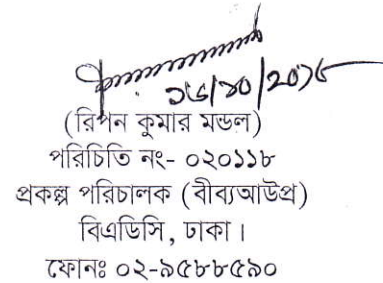 (রিপন কুমার মন্ডল)
পরিচিতি নং- ০২০১১৮
প্রকল্প পরিচালক (বীব্যআউপ্র)
বিএডিসি, ঢাকা।
ফোনঃ ০২-৯৫৮৮৫৯০